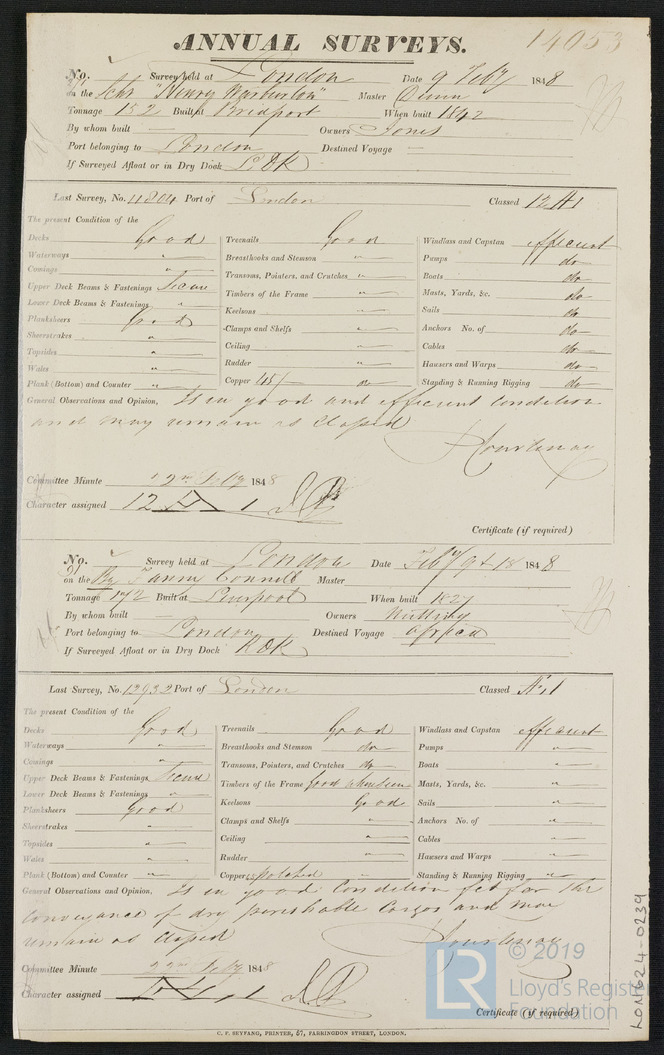 14053
ANNUAL SURVEYS.
No. Survey held at London Date 9 Feby 1848
on the Schr "Henry Warburton" Master Dunn
Tonnage 152 Built at Bridport When built 1842
By whom built — Owners Jones
Port belonging to London Destined Voyage —
If Surveyed Afloat or in Dry Dock
Last Survey, No. 11804 Port of London Classed 12 A1
The present Condition of the
Decks Good Treenails Good Windlass and Capstan efficient
Waterways " Breasthooks and Stemson " Pumps do
Comings " Transoms, Pointers, and Crutches " Boats do
Upper Deck Beams & Fastenings Secure Timbers of the Frame " Masts, Yards, &c. do
Lower Deck Beams & Fastenings " Keelsons " Sails do
Planksheers Good Clamps and Shelfs " Anchors No. of do
Sheerstrakes " Ceiling " Cables do
Topsides " Rudder " Hawsers and Warps do
Wales " Copper 45/- do Standing & Running Rigging do
Plank (Bottom) and Counter "
General Observations and Opinion, Is in good and efficient condition
and may remain as Classed
Courtenay
Committee Minute Feby 1848
Character assigned 12 A 1
Certificate (if required)
No. Survey held at London Date Feby 9 & 18 1848
on the Bg Fanny Connell Master
Tonnage 172 Built at Liverpool When built 1827
By whom built — Owners Nutting
Port belonging to London Destined Voyage Africa
If Surveyed Afloat or in Dry Dock
Last Survey, No. 13932 Port of London Classed Æ 1
The present Condition of the
Decks Good Treenails Good Windlass and Capstan efficient
Waterways " Breasthooks and Stemson do Pumps "
Comings " Transoms, Pointers, and Crutches do Boats "
Upper Deck Beams & Fastenings Secure Timbers of the Frame good where seen Masts, Yards, &c. "
Lower Deck Beams & Fastenings " Keelsons Good Sails "
Planksheers Good Clamps and Shelfs " Anchors No. of "
Sheerstrakes " Ceiling " Cables "
Topsides " Rudder " Hawsers and Warps "
Wales " Copper patched " Standing & Running Rigging "
Plank (Bottom) and Counter "
General Observations and Opinion, Is in good Condition fit for the
conveyance of dry perishable Cargos and may
remain as Classed
Courtenay
Committee Minute 22nd Feby 1848
Character assigned Æ 1
Certificate (if required)
C. F. SEYFANG, PRINTER, 57, FARRINGDON STREET, LONDON.
LON624-0239
LR
© 2019
Lloyd's Register
Foundation